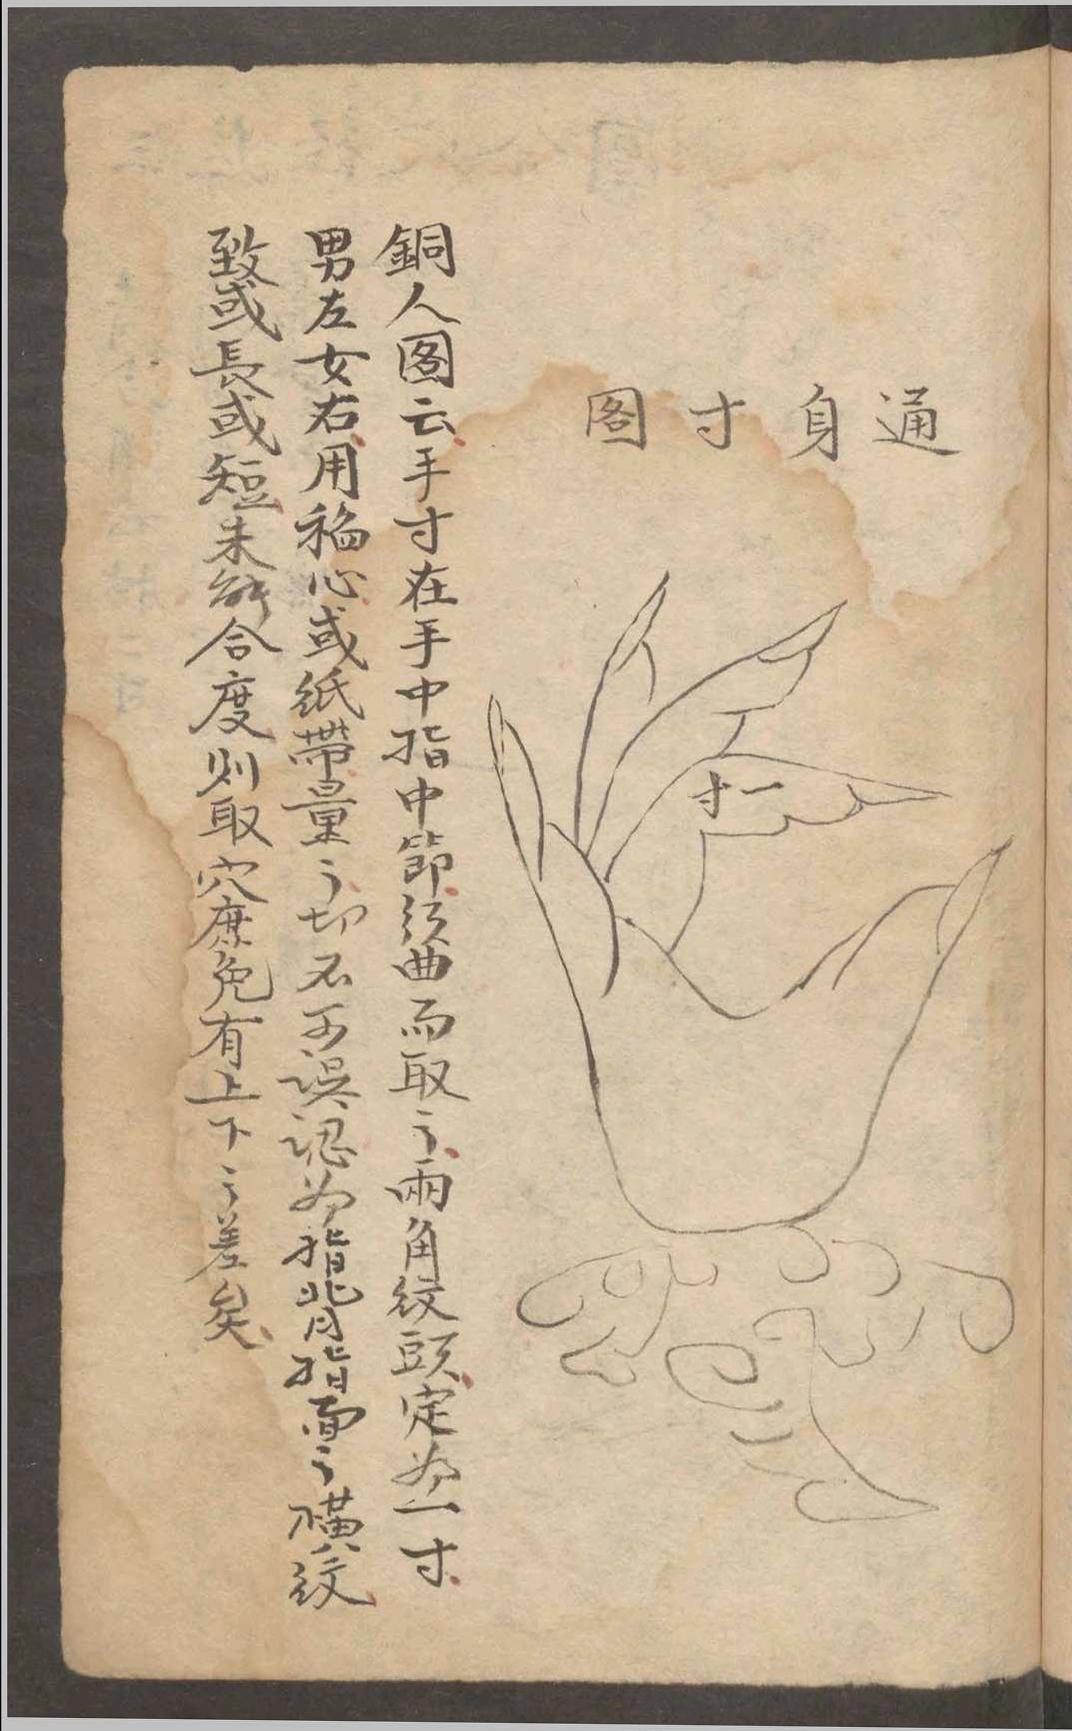 通身寸图
一寸
銅人图云手寸在手中指中節須曲而取之兩角紋頭定為一寸
男左女右用稻心或紙帶量之切不可誤認為指背指面之橫紋
致或長或短未能合度则取穴庶免有上下之差矣